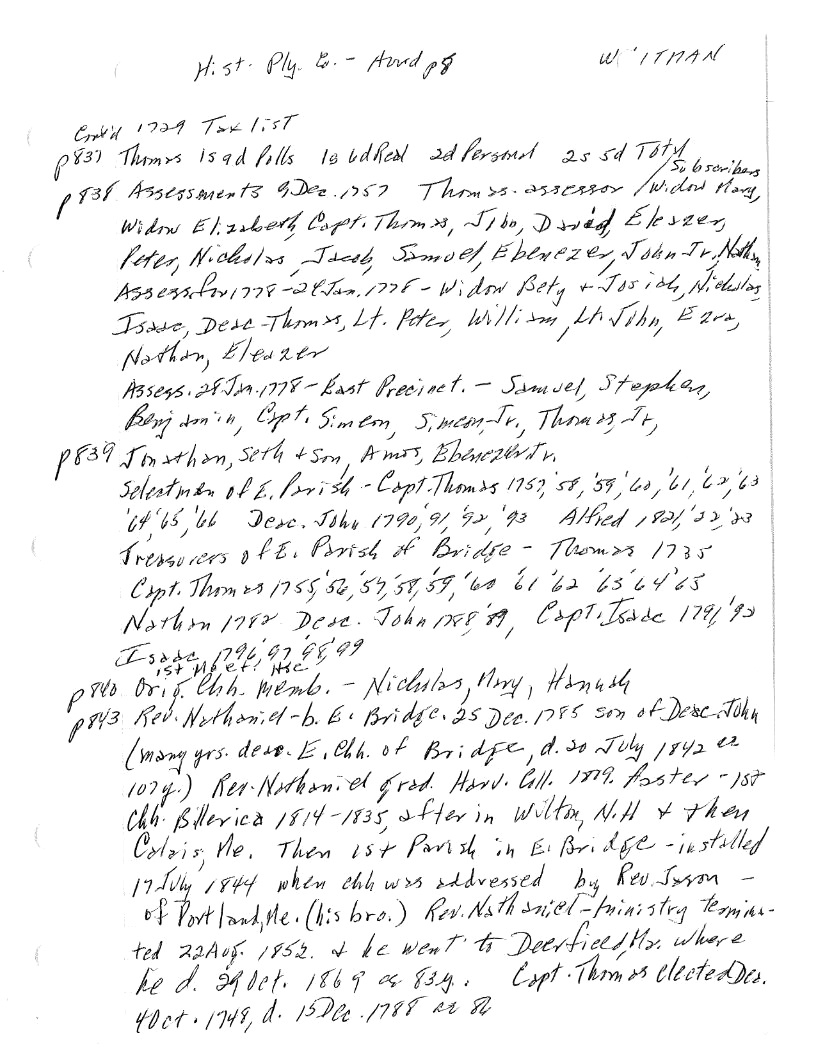 Hist. Ply. Co. - Hurd p8 W ITMAN
Cont'd 1729 Tax list
p837 Thomas 1s 9d Polls 1s 6d Real 2d Personal 2s 5d Total
p838 Assessments 9 Dec. 1757 Thomas - assessor / Subscribers Widow Mary,
Widow Elizabeth, Capt. Thomas, Jno, David, Eleazer,
Peter, Nicholas, Jacob, Samuel, Ebenezer, John Jr, Nathan
Assess for 1778 - 28 Jan. 1778 - Widow Bety + Josiah, Nicholas,
Isaac, Deac. Thomas, Lt. Peter, William, Lt. John, Ezra,
Nathan, Eleazer
Assess. 28 Jan. 1778 - East Precinct. - Samuel, Stephen,
Benjamin, Capt. Simeon, Simeon Jr., Thomas, Jr,
p839 Jonathan, Seth + Son, Amos, Ebenezer Jr.
Selectmen of E. Parish - Capt. Thomas 1757, '58, '59, '60, '61, '62, '63
'64, '65, '66 Deac. John 1790, '91, '92, '93 Alfred 1821, '22, '23
Treasurers of E. Parish of Bridge - Thomas 1735
Capt. Thomas 1755, '56, '57, '58, '59, '60 '61 '62 '63 '64 '65
Nathan 1782 Deac. John 1788, '89, Capt. Isaac 1791, '92
Isaac 1796, '97, '98, '99
1st Meet. Hse
p840 Orig. Chh. memb. - Nicholas, Mary, Hannah
p843 Rev. Nathaniel - b. E. Bridge. 25 Dec. 1785 son of Deac. John
(many yrs. deac. E. Chh. of Bridge, d. 20 July 1842 ae
107y.) Rev. Nathaniel grad. Harv. Coll. 1809. Paster - 1st
Chh. Billerica 1814-1835, after in Wilton, N.H + then
Calais, Me. Then 1st Parish in E. Bridge - installed
17 July 1844 when chh was addressed by Rev. Jason -
of Portland, Me. (his bro.) Rev. Nathaniel - ministry termina-
ted 22 Aug. 1852. + he went to Deerfield, Ma. where
he d. 29 Oct. 1869 ae 83y. Capt. Thomas elected Dea.
4 Oct. 1748, d. 15 Dec. 1788 ae 86